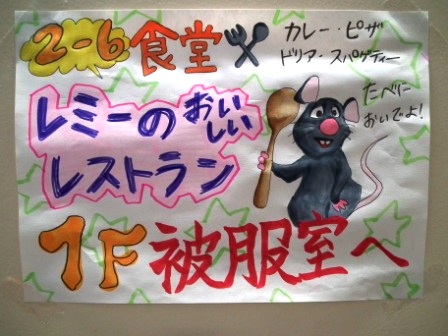 2-6食堂
カレー・ピザ
ドリア・スパゲティー
レミーのおいしい
レストラン
たべに
おいでよ!
1F 被服室へ